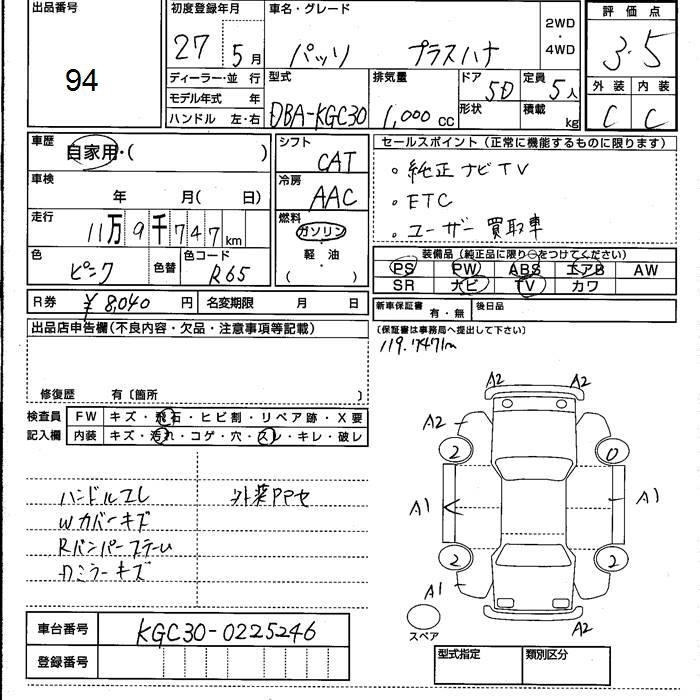 出品番号
94
初度登録年月
27 5月
車名・グレード
パッソ プラスハナ
2WD
・
4WD
評価点
3.5
外装 内装
C C
ディーラー・並 行
モデル年式 年
ハンドル 左・右
型式
DBA-KGC30
排気量
1,000 cc
ドア
5D
形状
定員
5人
積載
kg
車歴
自家用・( )
車検
年 月( 日)
走行
11万9千747km
色
ピンク
色替
色コード
R65
シフト
CAT
冷房
AAC
燃料
ガソリン
・
軽・油
( )
セールスポイント(正常に機能するものに限ります)
。純正ナビTV
。ETC
。ユーザー買取車
装備品(純正品に限り○をつけてください)
PS PW ABS エアB AW
SR ナビ TV カワ
R券 ¥8,040 円
名変期限 月 日
新車保証書
有・無
後日品
(保証書は事務局へ提出して下さい)
119,747km
出品店申告欄(不良内容・欠品・注意事項等記載)
修復歴 有〔箇所 〕
検査員
記入欄
FW キズ・飛石・ヒビ割・リペア跡・X要
内装 キズ・汚れ・コゲ・穴・スレ・キレ・破レ
ハンドルスレ
Wカバーキズ
Rバンパー
ミラーキズ
外装PPセ
A2 A2
A2
2 0
A1 A1
2 2
A1
A2
スペア
車台番号 KGC30-0225246
登録番号
型式指定 類別区分